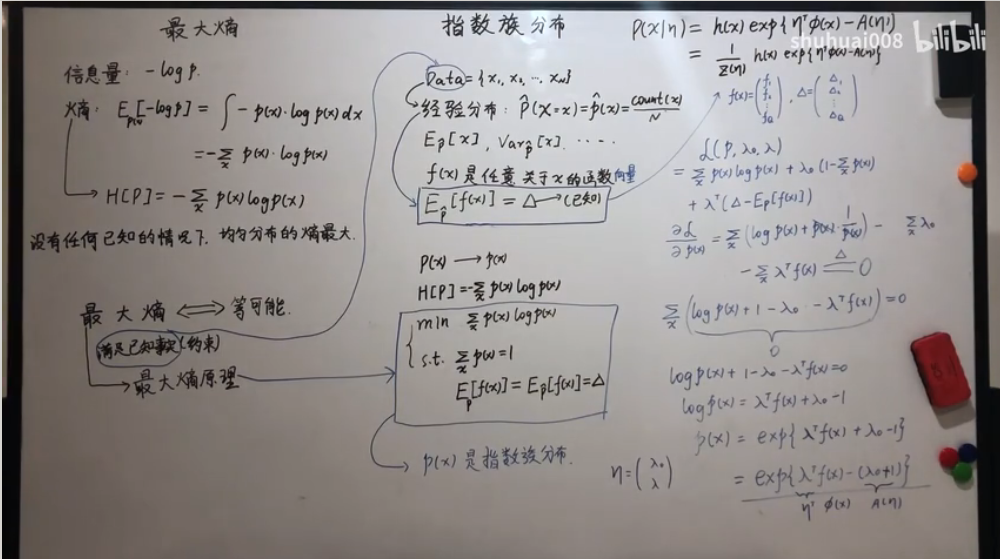 最大熵
信息量: -log p.
熵: E_{p(x)}[-log p] = ∫ - p(x)·log p(x) dx
= -∑_x p(x)·log p(x)
H[P] = -∑_x p(x) log p(x)
没有任何已知的情况下, 均匀分布的熵最大.
最大熵 ⟺ 等可能.
满足已知事实(约束)
最大熵原理
指数族分布
Data = {x₁, x₂, … x_N}
经验分布: P̂(X=x) = p̂(x) = count(x)/N
E_p̂[x], Var_p̂[x]. ‥‥
f(x) 是任意关于x的函数向量
E_p̂[f(x)] = Δ → (已知)
P(x) → p(x)
H[P] = -∑_x p(x) log p(x)
min ∑_x p(x) log p(x)
s.t. ∑_x p(x) = 1
E_p[f(x)] = E_p̂[f(x)] = Δ
p(x) 是指数族分布.
P(x|η) = h(x) exp{η^T φ(x) - A(η)}
= 1/Z(η) h(x) exp{η^T φ(x) - A(η)}
shuhuai008 bilibili
f(x) = (f₁ f₂ ⋮ f_Q), Δ = (Δ₁ Δ₂ ⋮ Δ_Q)
ℒ(p, λ₀, λ)
= ∑_x p(x) log p(x) + λ₀(1-∑_x p(x))
+ λ^T(Δ - E_p[f(x)])
∂ℒ/∂p(x) = ∑_x (log p(x) + p(x)·1/p(x)) - ∑_x λ₀
- ∑_x λ^T f(x) ≜ 0
∑_x (log p(x) + 1 - λ₀ - λ^T f(x)) = 0
0
log p(x) + 1 - λ₀ - λ^T f(x) = 0
log p(x) = λ^T f(x) + λ₀ - 1
p(x) = exp{λ^T f(x) + λ₀ - 1}
η = (λ₀ λ)
= exp{λ^T f(x) - (λ₀+1)}
η^T φ(x) A(η)